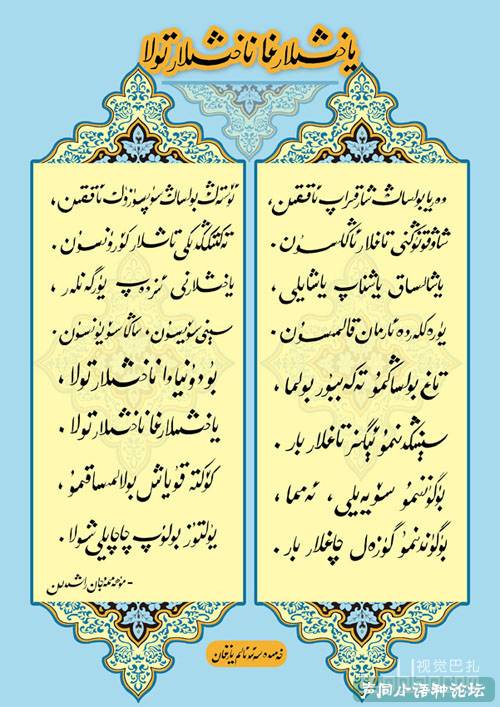 ياخشىلارغا ناخشىلار تولا
دەريا بولساڭ شاقىراپ ئاققىن،
شاۋقۇنۇڭنى تاغلار ئاڭلىسۇن.
ياشالساق ياشناپ ياشايلى،
يۈرەكلەردە ئارمان قالمىسۇن.
تاغ بولساڭمۇ تەكەببۇر بولما،
سېنىڭدىنمۇ ئېگىز تاغلار بار.
بۈگۈننىمۇ سۆيەيلى، ئەمما،
بۈگۈندىنمۇ گۈزەل چاغلار بار.
ئۆستەڭ بولساڭ سۈپسۈزۈك ئاققىن،
تەكتىڭدىكى تاشلار كۆرۈنسۇن.
ياخشىلارنى ئىزدەپ يۈرگەنلەر،
سېنى سۆيسۇن، ساڭا سۆيۈنسۇن.
بۇ دۇنيادا ناخشىلار تولا،
ياخشىلارغا ناخشىلار تولا.
كۆكتە قۇياش بولالمىساقمۇ،
يۇلتۇز بولۇپ چاچايلى شولا.
- مۇھەممەتجان راشىدىن
视觉巴扎
声同小语种论坛